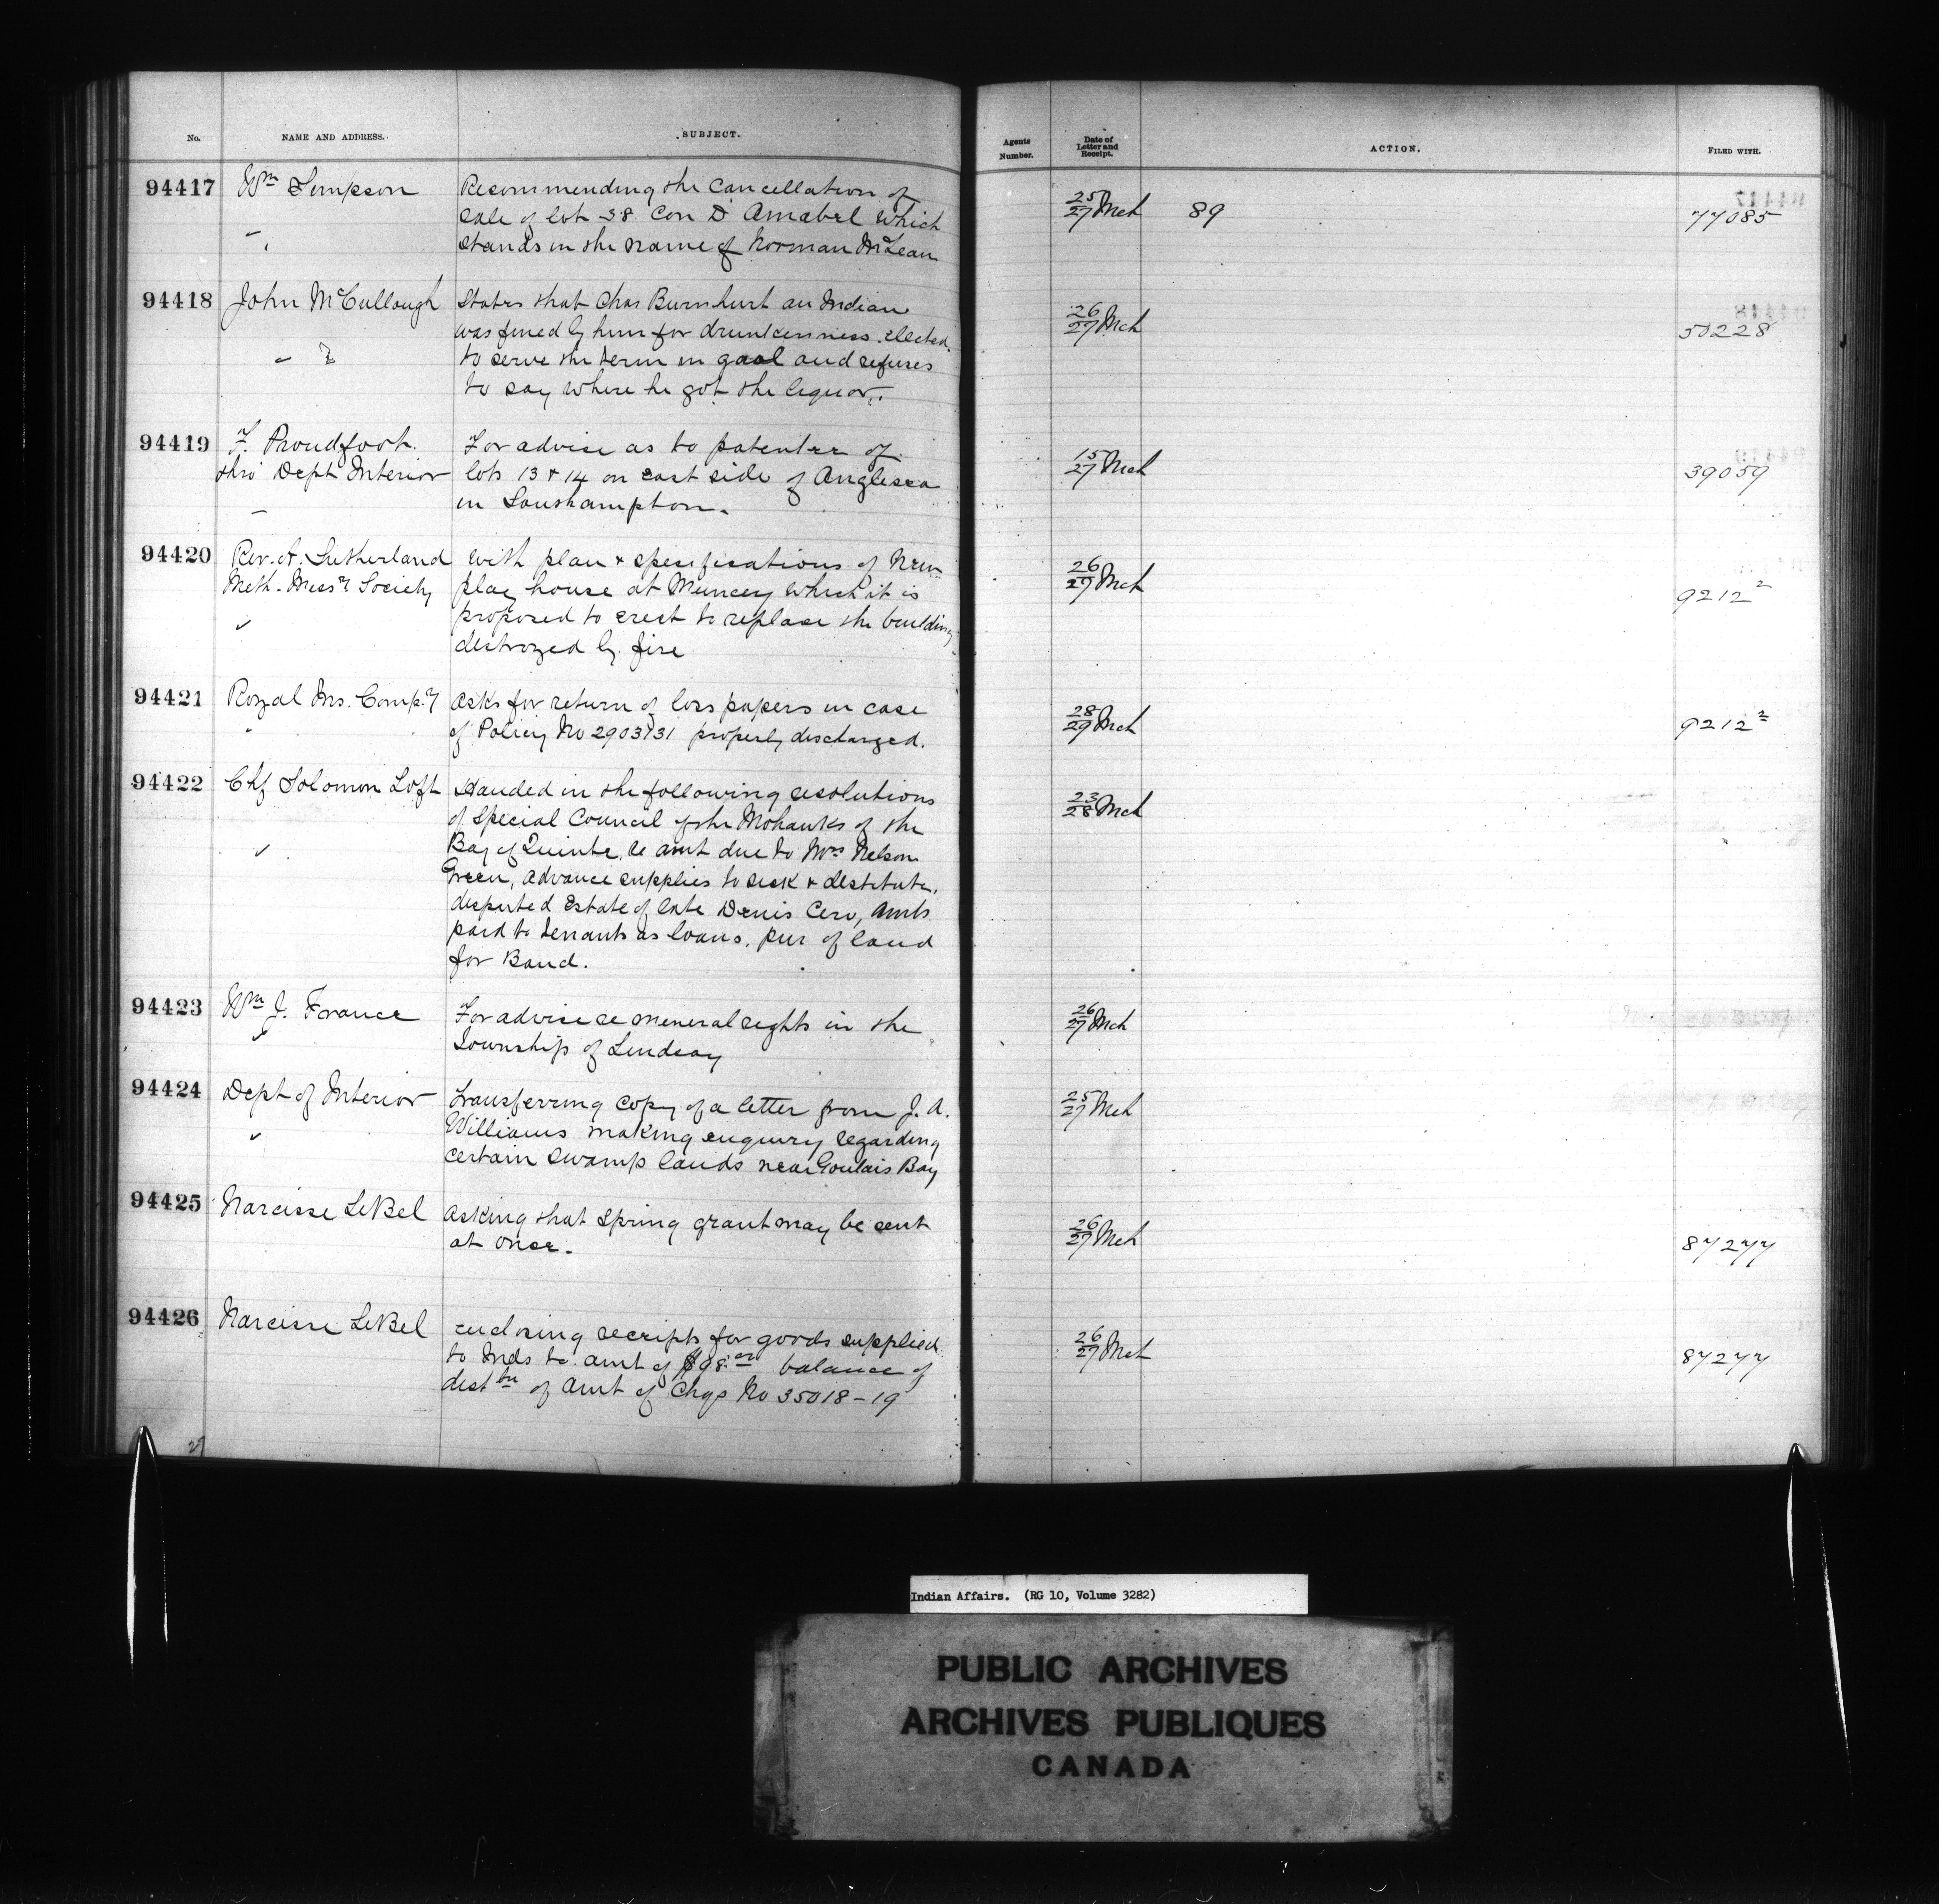 No. NAME AND ADDRESS. SUBJECT. Agents Number. Date of Letter and Receipt. ACTION. FILED WITH.
94417 Wm Simpson Recommending the Cancellation of
sale of lot 38 Con D Amabel which
stands in the name of Norman McLean
25/27 Mch 89 77085
94418 John McCullough States that Chas Burnhurt an Indian
was fined by him for drunkenness elected
to serve the term in gaol and refuses
to say where he got the liquor.
26/27 Mch 50228
94419 F. Proudfoot For advise as to patentee of
thro' Dept Interior lots 13 & 14 on east side of Anglesea
in Southampton.
15/27 Mch 39059
94420 Rev. A. Sutherland With plan & specifications of New
Meth. Missy Society play house at Muncey which it is
proposed to erect to replace the building
destroyed by fire
26/27 Mch 9212 2
94421 Royal Ins. Compy Asks for return of loss papers in case
of Policy No 2903731 properly discharged.
28/29 Mch 9212 2
94422 Chf Solomon Loft Handed in the following resolutions
of Special Council of the Mohawks of the
Bay of Quinte, re amt due to Mrs Nelson
Green, advance supplies to sick & destitute,
disputed Estate of late Denis Cero, amts
paid to tenants as loans, pur of land
for Band.
23/28 Mch
94423 Wm J. France For advise re mineral rights in the
Township of Lindsay
26/27 Mch
94424 Dept of Interior Transferring copy of a letter from J. A.
Williams making enquiry regarding
certain swamp lands near Goulais Bay
25/27 Mch
94425 Narcisse LeBel Asking that Spring grant may be sent
at once.
26/27 Mch 87277
94426 Narcisse LeBel Enclosing receipts for goods supplied
to Inds to amt of $98.00 balance of
distbn of Amt of Chqs No 35018-19
26/27 Mch 87277
27
Indian Affairs. (RG 10, Volume 3282)
PUBLIC ARCHIVES
ARCHIVES PUBLIQUES
CANADA